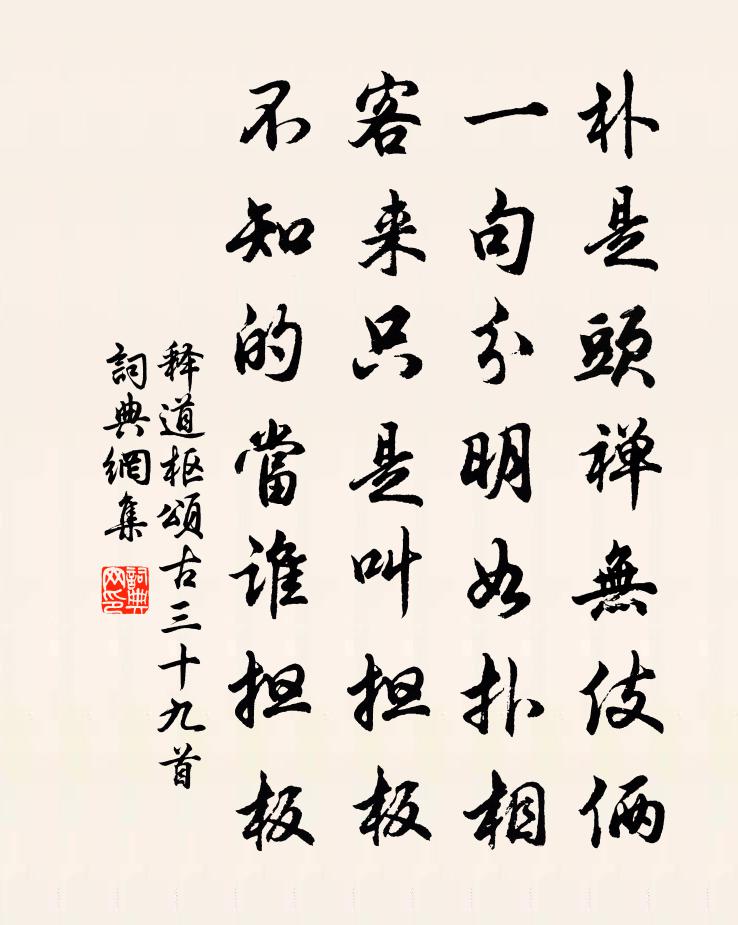 朴是頭禅無伎俩
一句分明如扑相
客来只是叫担板
不知的當谁担板
释道枢頌古三十九首
詞典網集
詞典網印